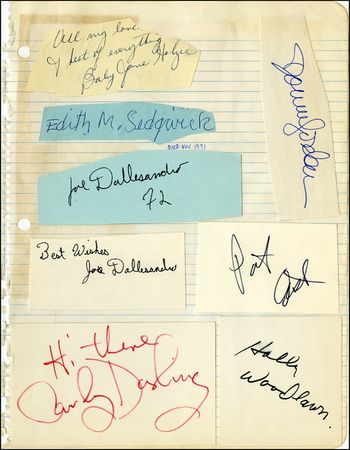 All my love
& best of everything
Baby Jane Holzer
Edith M. Sedgwick
DIED NOV 1971
Joe Dallesandro
72
Best Wishes
Joe Dallesandro
Pat
Ast
Hi there
Candy Darling
Holly
Woodlawn